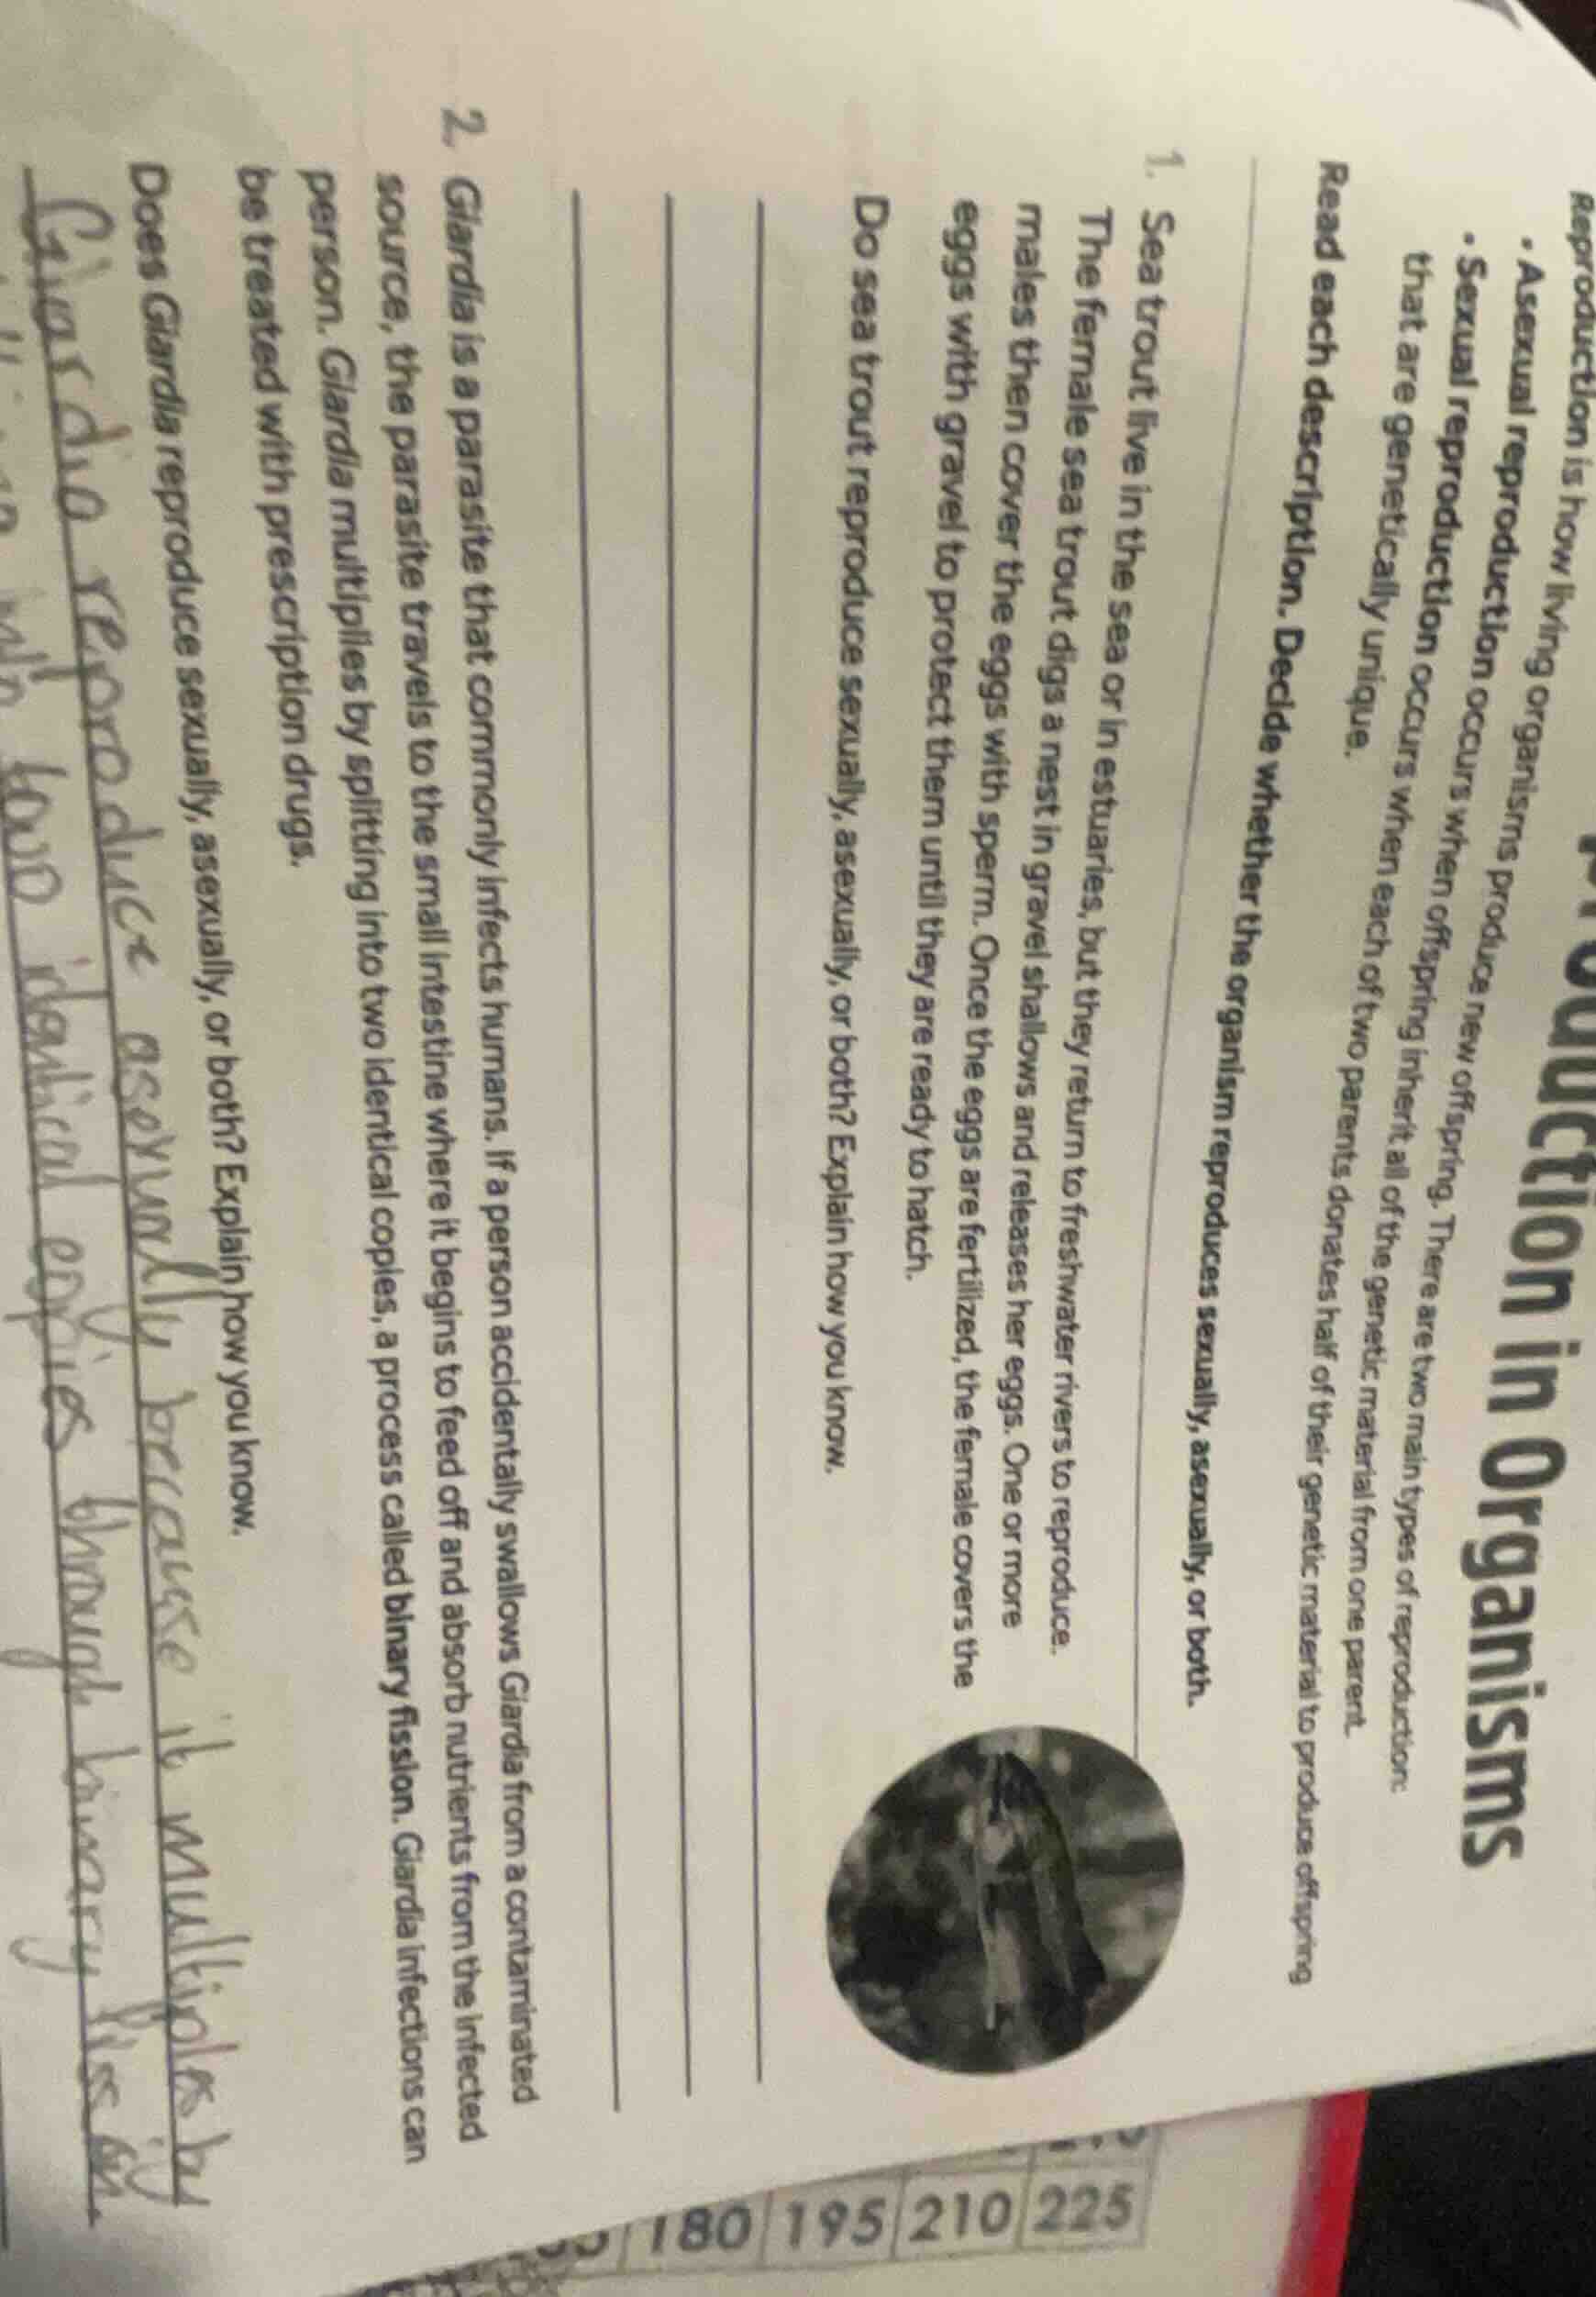 Reproduction in Organisms
Reproduction is how living organisms produce new offspring. There are two main types of reproduction:
• Asexual reproduction occurs when offspring inherit all of the genetic material from one parent.
• Sexual reproduction occurs when each of two parents donates half of their genetic material to produce offspring
that are genetically unique.
Read each description. Decide whether the organism reproduces sexually, asexually, or both.
1. Sea trout live in the sea or in estuaries, but they return to freshwater rivers to reproduce.
The female sea trout digs a nest in gravel shallows and releases her eggs. One or more
males then cover the eggs with sperm. Once the eggs are fertilized, the female covers the
eggs with gravel to protect them until they are ready to hatch.
Do sea trout reproduce sexually, asexually, or both? Explain how you know.
2. Giardia is a parasite that commonly infects humans. If a person accidentally swallows Giardia from a contaminated
source, the parasite travels to the small intestine where it begins to feed off and absorb nutrients from the infected
person. Giardia multiplies by splitting into two identical copies, a process called binary fission. Giardia infections can
be treated with prescription drugs.
Does Giardia reproduce sexually, asexually, or both? Explain how you know.
Giardia reproduce asexually because it multiples by
two identical copies through binary
180 195 210 225